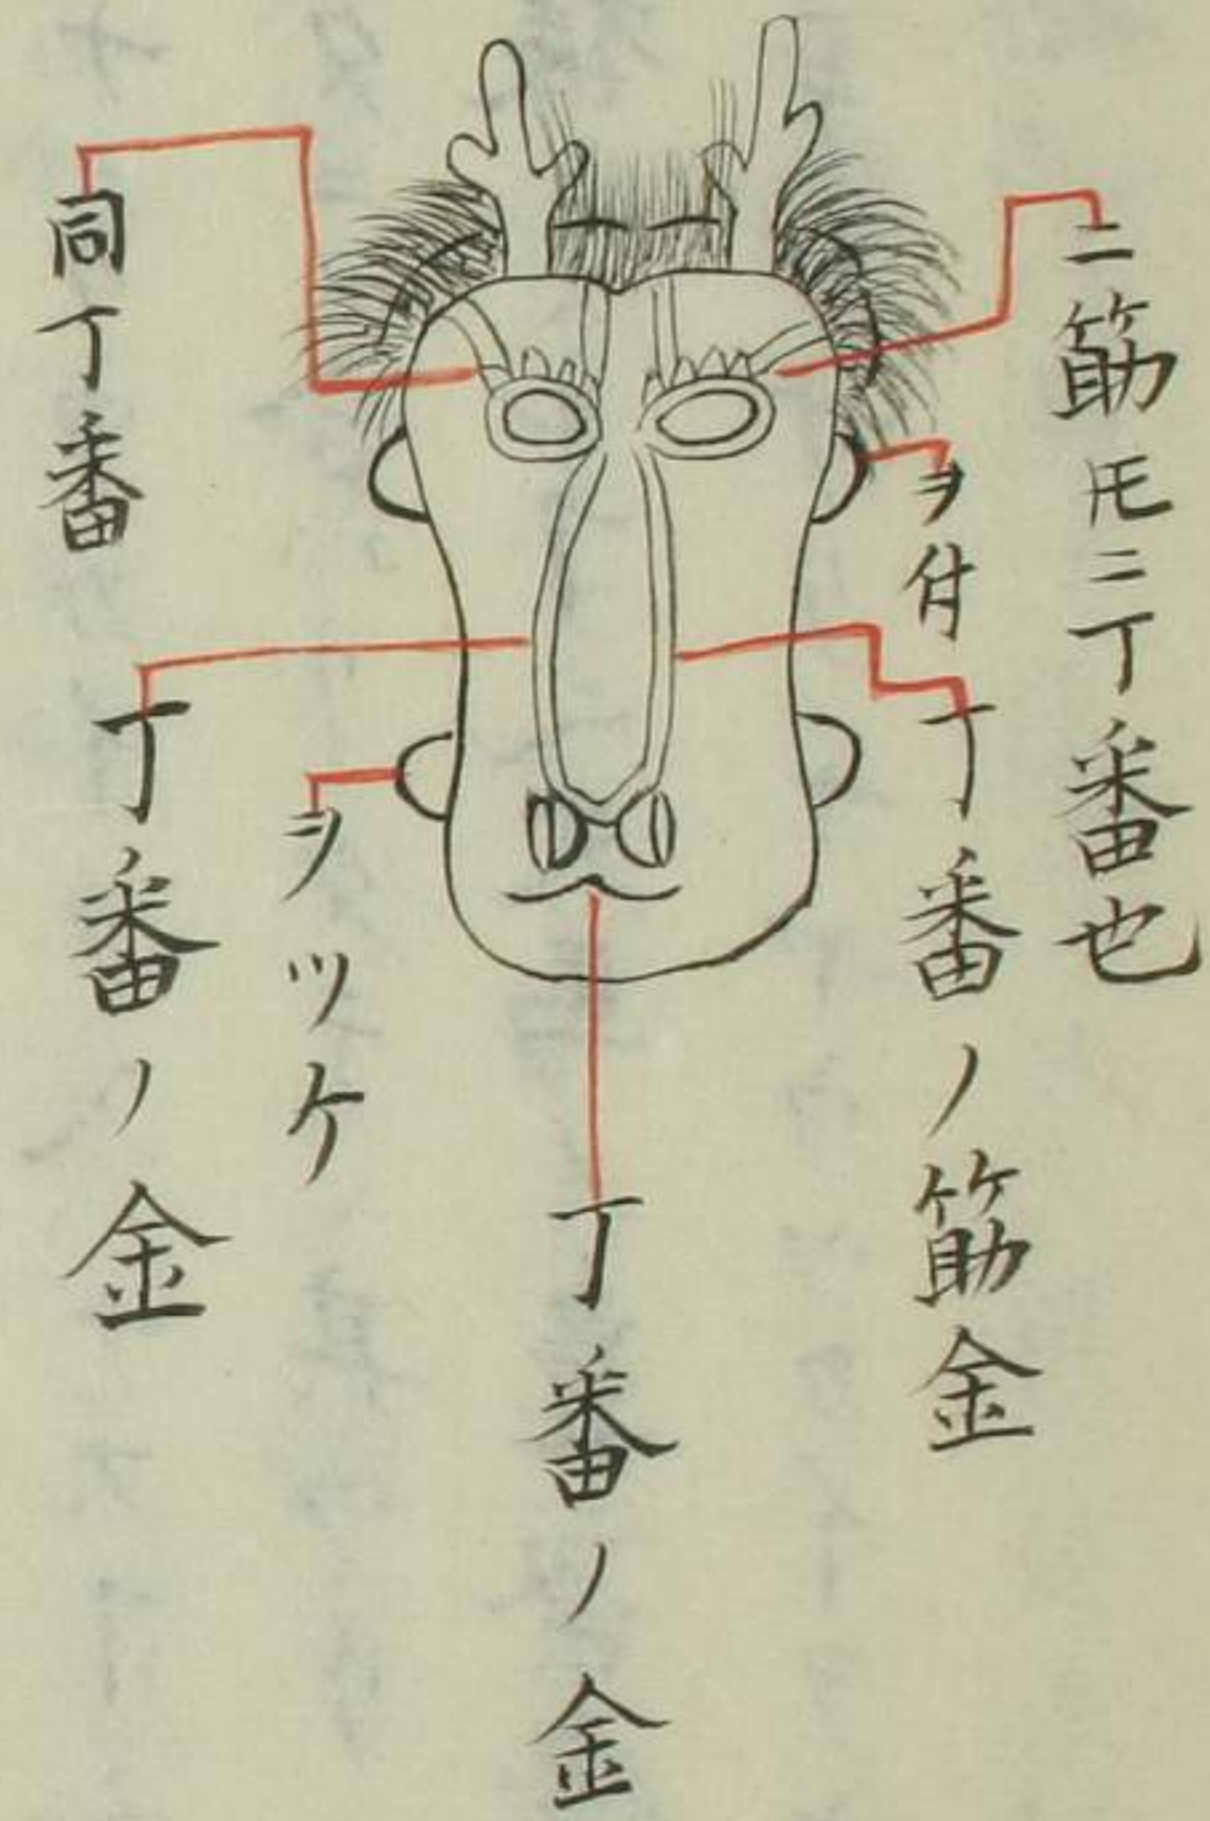 二筋𪜈ニ丁番也
ヲ付
丁番ノ筋金
丁番ノ金
ヲツケ
丁番ノ金
同丁番